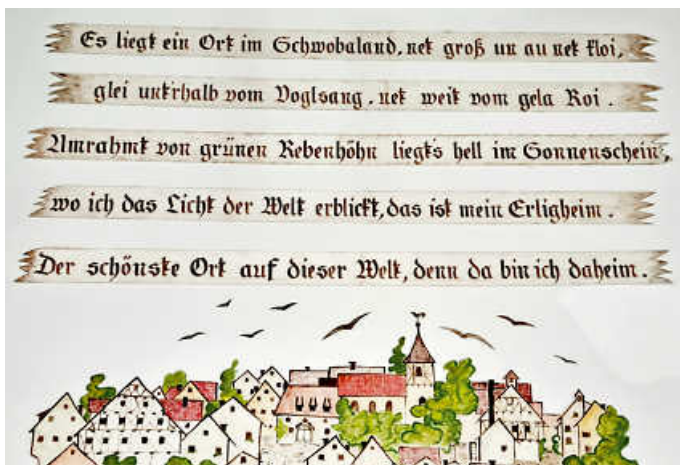 Es liegt ein Ort im Schwobaland, net groß un au net kloi,
glei unt'rhalb vom Voglsang, net weit vom gela Roi.
Umrahmt von grünen Rebenhöhn liegt's hell im Sonnenschein,
wo ich das Licht der Welt erblickt, das ist mein Erligheim.
Der schönste Ort auf dieser Welt, denn da bin ich daheim.